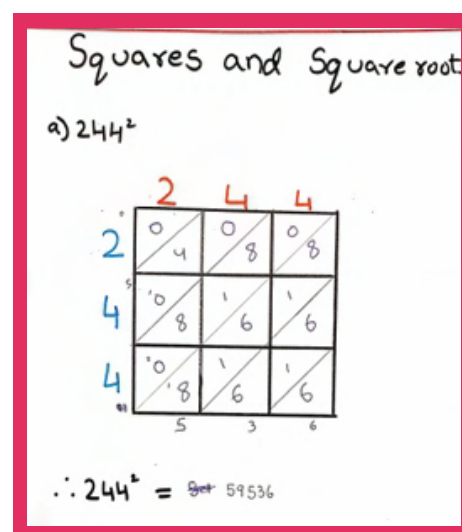 Squares and Square root
a) 244²
2 4 4
2 0 4 0 8 0 8
4 0 8 1 6 1 6
4 0 8 1 6 1 6
5 3 6
∴ 244² = 59536